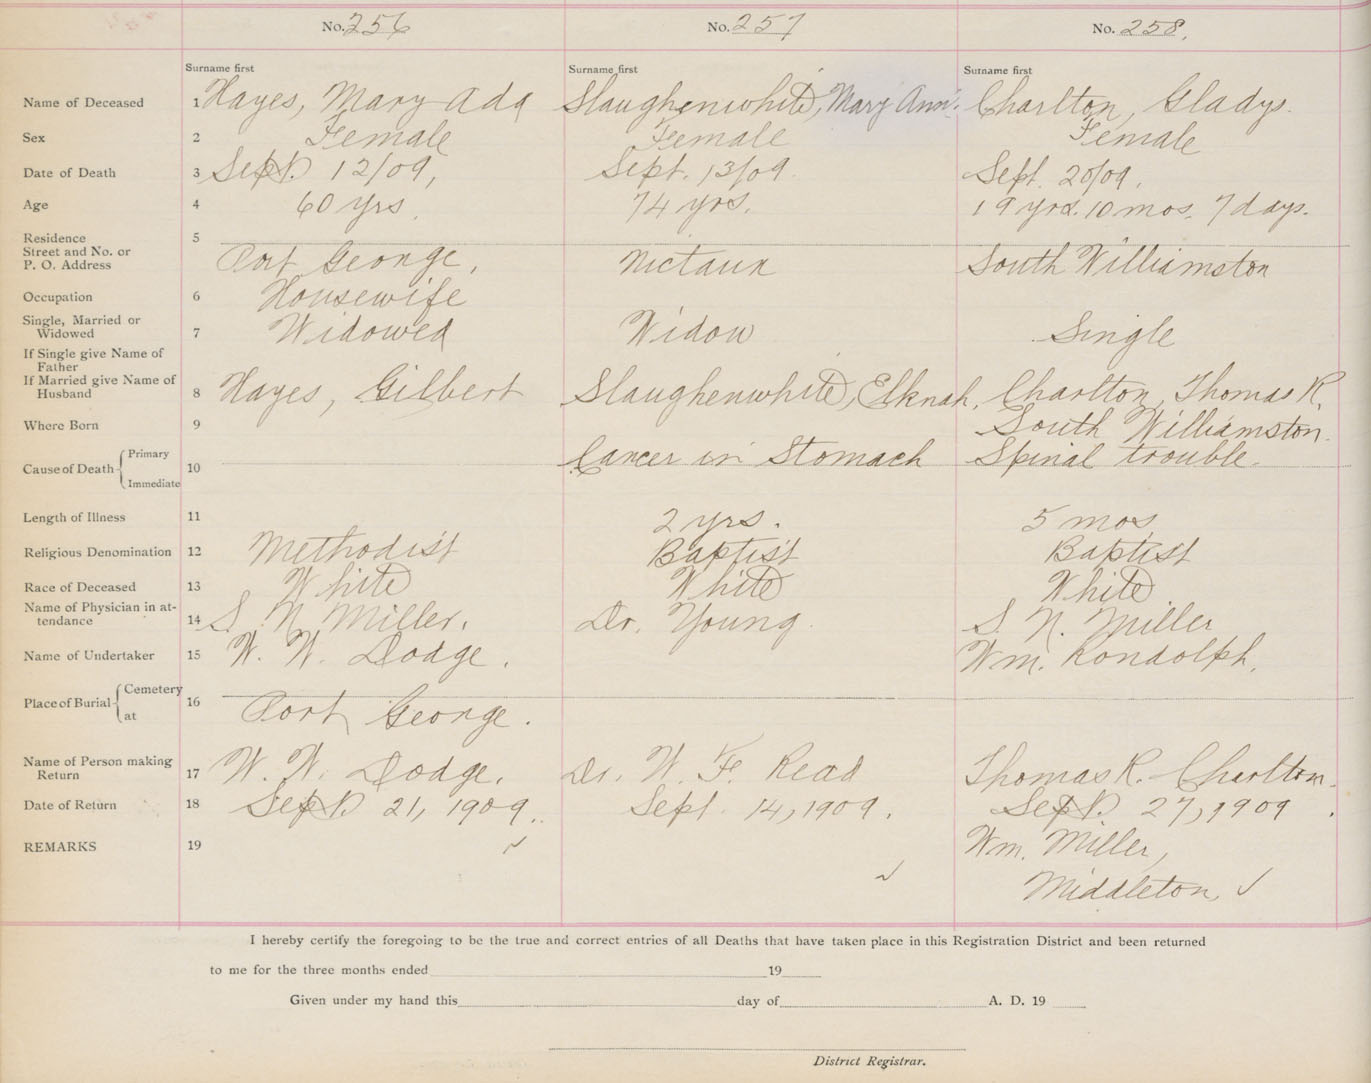 No. 256 No. 257 No. 258.
Surname first Surname first Surname first
Name of Deceased 1 Hayes, Mary Ada Slaughenwhite, Mary Ann. Charlton, Gladys.
Sex 2 Female Female Female
Date of Death 3 Sept. 12/09, Sept. 13/09. Sept. 20/09.
Age 4 60 yrs. 74 yrs. 19 yrs. 10 mos. 7 days.
Residence 5
Street and No. or
P. O. Address Port George, Nictaux South Williamston
Occupation 6 Housewife
Single, Married or
Widowed 7 Widowed Widow Single
If Single give Name of
Father
If Married give Name of
Husband 8 Hayes, Gilbert Slaughenwhite, Elknah, Charlton, Thomas R.
Where Born 9 South Williamston.
Cause of Death Primary
10 Cancer in Stomach Spinal trouble.
Immediate
Length of Illness 11 2 yrs. 5 mos
Religious Denomination 12 Methodist Baptist Baptist
Race of Deceased 13 White White White
Name of Physician in at-
tendance 14 S. N. Miller. Dr. Young. S. N. Miller
Name of Undertaker 15 W. W. Dodge. Wm. Rondolph.
Place of Burial Cemetery
at 16 Port George.
Name of Person making
Return 17 W. W. Dodge. Dr. W. F. Read Thomas R. Charlton.
Date of Return 18 Sept. 21, 1909. Sept. 14, 1909. Sept. 27, 1909.
REMARKS 19 Wm. Miller,
Middleton.
I hereby certify the foregoing to be the true and correct entries of all Deaths that have taken place in this Registration District and been returned
to me for the three months ended 19
Given under my hand this day of A. D. 19
District Registrar.